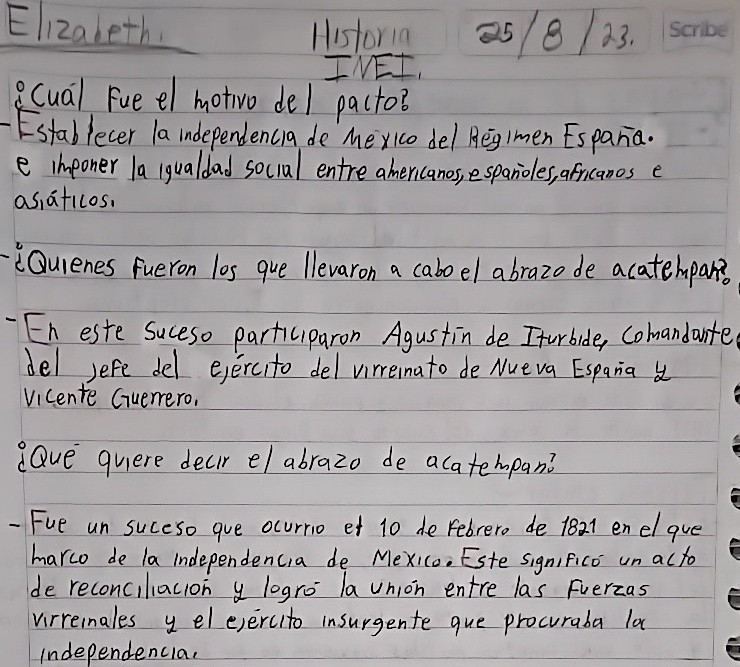 Elizabeth. Historia 25/8/23. Scribe
INEI.
¿Cuál fue el motivo del pacto?
-Establecer la independencia de México del Régimen España.
e imponer la igualdad social entre americanos, españoles, africanos e
asiáticos.
-¿Quienes fueron los que llevaron a cabo el abrazo de acatempan?
-En este suceso participaron Agustín de Iturbide, comandante
del jefe del ejército del virreinato de Nueva España y
Vicente Guerrero.
¿Qué quiere decir el abrazo de acatempan?
-Fue un suceso que ocurrio el 10 de Febrero de 1821 en el que
marco de la independencia de Mexico. Este significó un acto
de reconciliación y logró la unión entre las fuerzas
virreinales y el ejército insurgente que procuraba la
independencia.